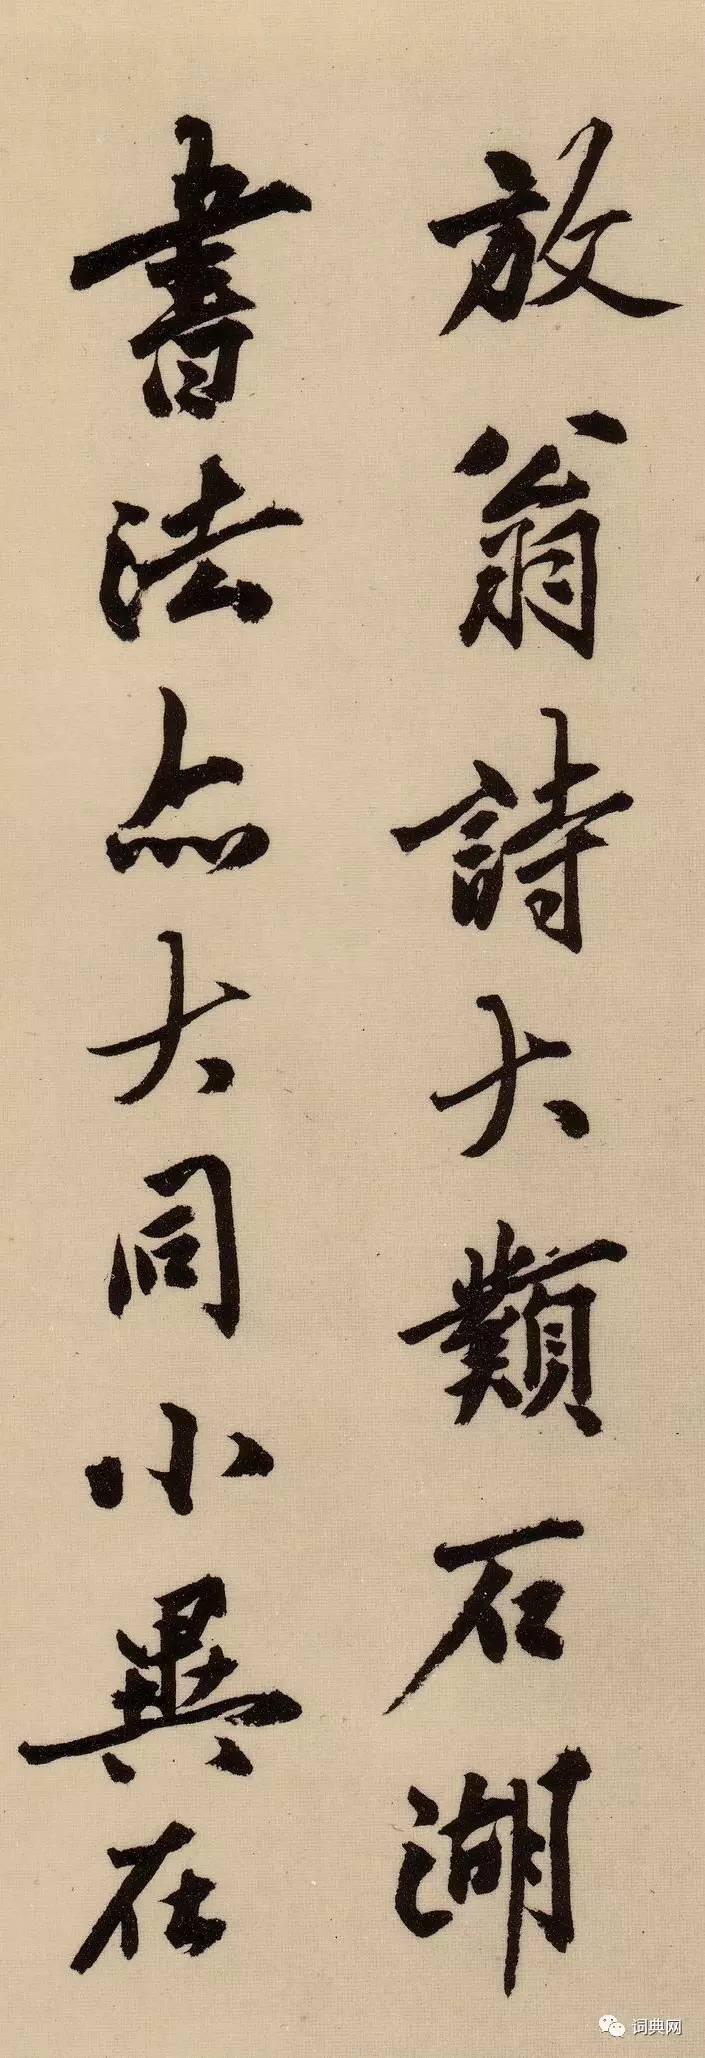 放翁詩大類石湖
書法亦大同小異在
词典网